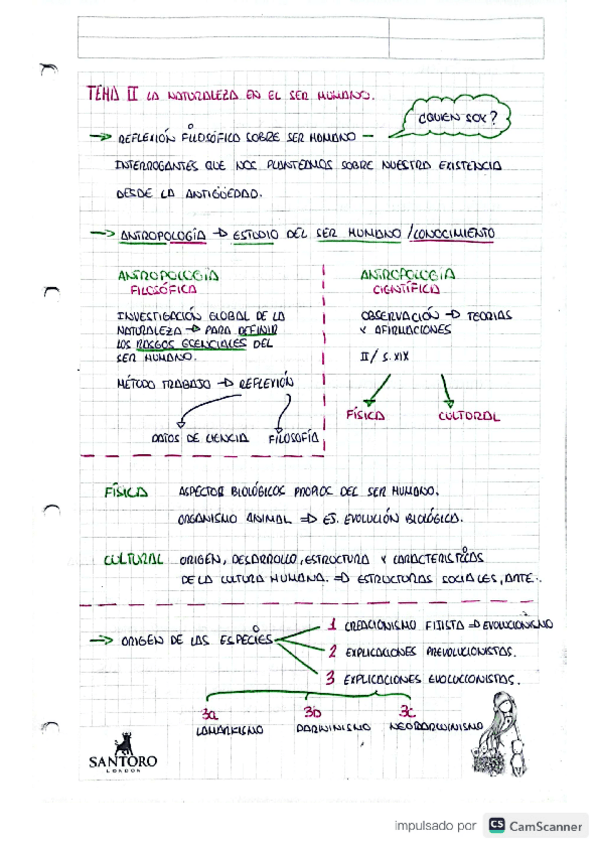 TEMA II LA NATURALEZA EN EL SER HUMANO.
¿QUIEN SOY?
→ REFLEXIÓN FILOSÓFICA SOBRE SER HUMANO —
INTERROGANTES QUE NOS PLANTEAMOS SOBRE NUESTRA EXISTENCIA
DESDE LA ANTIGÜEDAD.
→ ANTROPOLOGÍA → ESTUDIO DEL SER HUMANO / CONOCIMIENTO
ANTROPOLOGÍA
FILOSÓFICA
INVESTIGACIÓN GLOBAL DE LA
NATURALEZA → PARA DEFINIR
LOS RASGOS ESENCIALES DEL
SER HUMANO.
MÉTODO TRABAJO → REFLEXIÓN
DATOS DE CIENCIA FILOSOFÍA
ANTROPOLOGÍA
CIENTÍFICA
OBSERVACIÓN → TEORIAS
Y AFIRMACIONES
II/ S. XIX
FÍSICA CULTURAL
FÍSICA ASPECTOS BIOLÓGICOS PROPIOS DEL SER HUMANO.
ORGANISMO ANIMAL ⇒ ES. EVOLUCIÓN BIOLÓGICA.
CULTURAL ORIGEN, DESARROLLO, ESTRUCTURA Y CARACTERISTICAS
DE LA CULTURA HUMANA. ⇒ ESTRUCTURAS SOCIALES, ARTE..
→ ORIGEN DE LAS ESPECIES
1 CREACIONISMO FIJISTA ⇒ EVOLUCIONISMO
2 EXPLICACIONES PREVOLUCIONISTAS.
3 EXPLICACIONES EVOLUCIONISTAS.
3a 3b 3c
LAMARKISMO DARWINISMO NEODARWINISMO
SANTORO
LONDON
impulsado por CS CamScanner